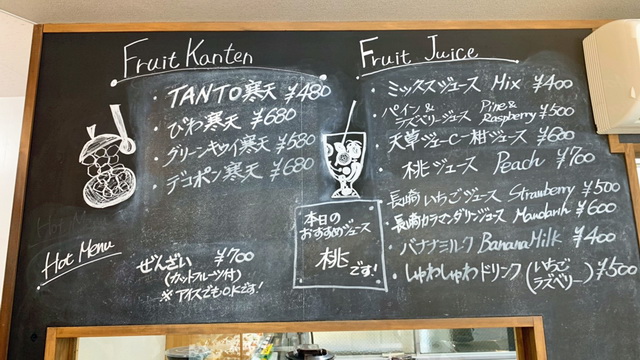 Fruit Kanten
・TANTO寒天 ¥480
・びわ寒天 ¥680
・グリーンキウイ寒天 ¥580
・デコポン寒天 ¥680
Hot Menu
ぜんざい ¥700
(カットフルーツ付)
※アイスでもOKです!
Fruit Juice
・ミックスジュース Mix ¥400
・パイン&ラズベリージュース Pine&Raspberry ¥500
・天草ジューC一柑ジュース ¥600
・桃ジュース Peach ¥700
・長崎いちごジュース Strawberry ¥500
・長崎カラマンダリンジュース Mandarin ¥600
・バナナミルク BananaMilk ¥400
・しゅわしゅわドリンク (いちごラズベリー) ¥500
本日の
おすすめジュース
桃です!